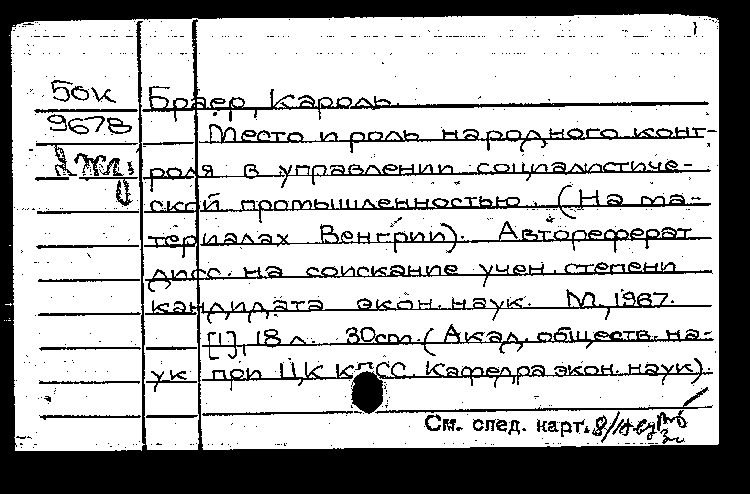 50к
Браер, Кароль.
9678
Место и роль народного конт-
роля в управлении социалистиче-
ской промышленностью. (На ма-
териалах Венгрии). Автореферат
дисс. на соискание учен. степени
кандидата экон. наук. М., 1967.
[1], 18 л. 30cm. (Акад. обществ. на-
ук при ЦК КПСС. Кафедра экон. наук).
См. след. карт.